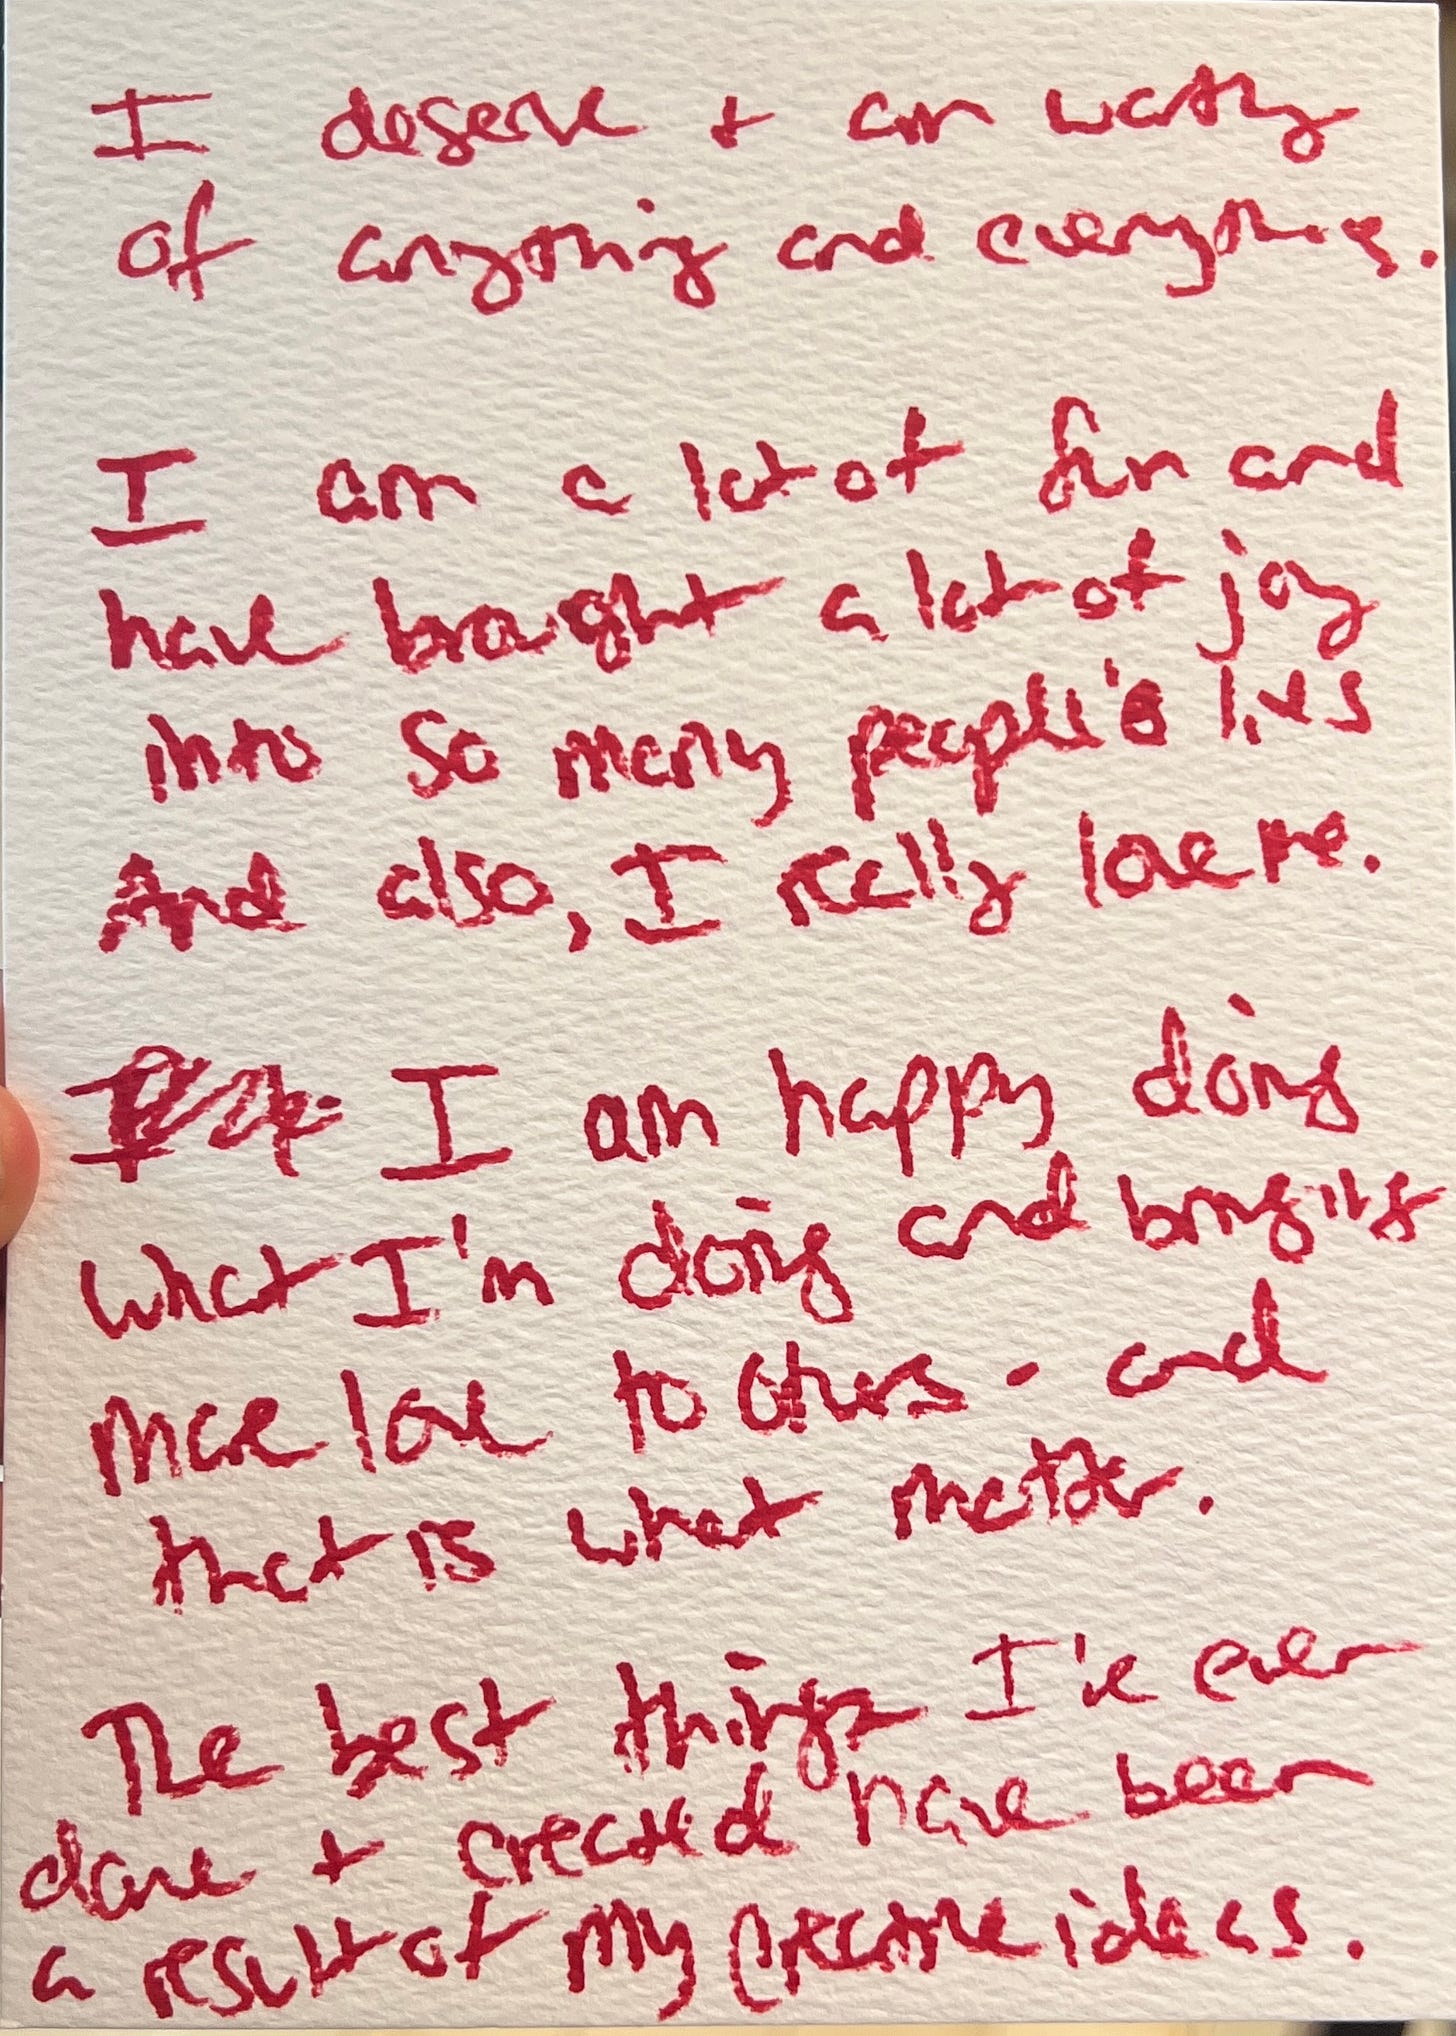 I deserve + am worthy
of anything and everything.
I am a lot of fun and
have brought a lot of joy
into so many people's lives
And also, I really love me.
I am happy doing
what I'm doing and bringing
more love to others - and
that is what matters.
The best things I've ever
done + created have been
a result of my creative ideas.